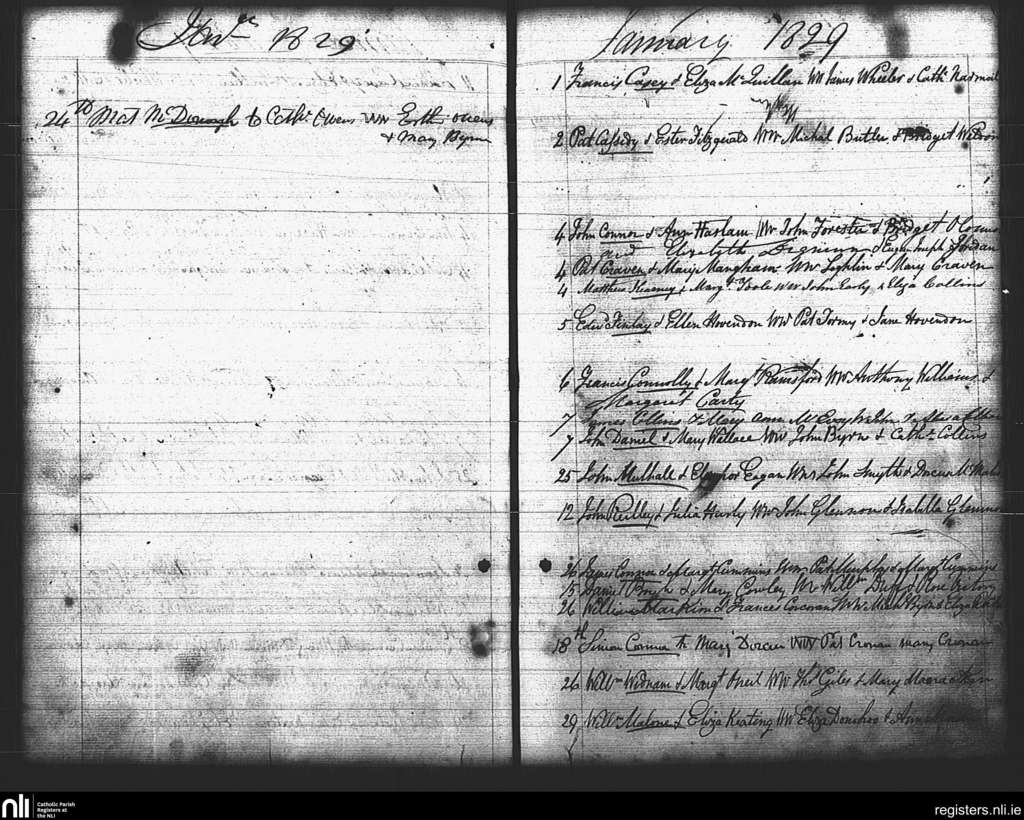 Jany 1829
24th Mat McDonough to Cathe Owens WW
& Mary Byrn
January 1829
1 Francis Casey & Eliza McQuillan WW James Wheeler & Cathe
2 Pat Cassedy & Ester Fitzgerald WW Michal Butler & Bridget Watson
4 John Connor & Ann Haslam WW John Forester & Bridget
and Elizabeth Jordan
4 Pat Craven & Mary Mangham WW Loghlin & Mary Craven
4 Matthew Kearney & Margt Toole WW John Early & Eliza Collins
5 Edwd Finlay & Ellen Hovendon WW Pat Tormy & Jane Hovendon
6 Francis Connolly & Margt Rainsford WW Anthony Williams &
Margaret Carty
7 James Collins & Mary Anne McEvoy WW John
7 John Daniel & Mary Wallace WW John Byrn & Cathe Collins
25 John Mulhall & Eleanor Eagan WW John Smyth &
12 John Reilley & Julia Hurly WW John Glennon & Isabella Glennon
26 James Connor & Margt Cummins WW Pat Murphy & Margt Cummins
15 Daniel & Mary Cowley WW Willm Duff & Rose
26 William Larkin & Frances Corcoran WW Mich Byrn & Eliza
18th Simon Connor to Mary Doran WW Pat Cronan Mary Cronan
26 Willm Widnam & Margt Oneil WW Thos Giles & Mary
29 Willm Malone & Eliza Keating WW Eliza Donohoe &
nli
Catholic Parish
Registers at
the NLI
registers.nli.ie